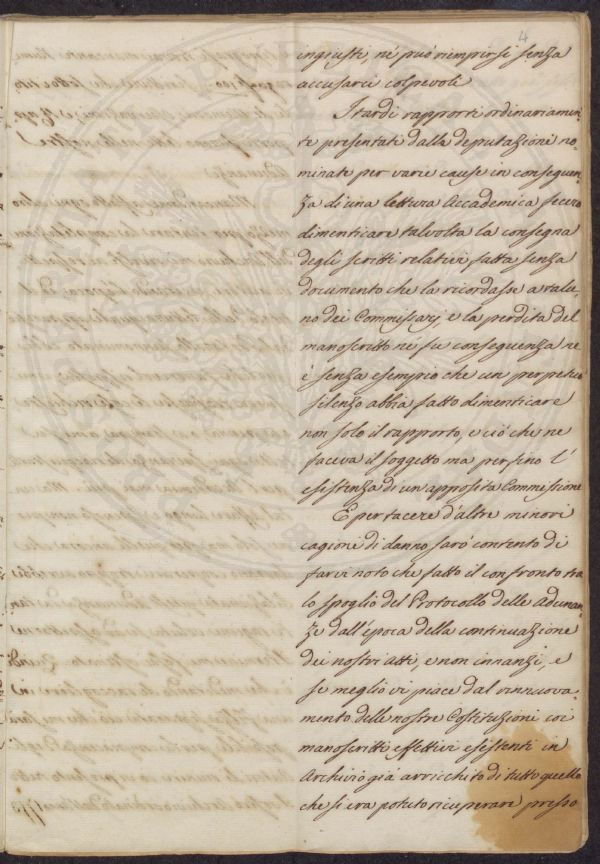 4
ingiusti, nè può riempirsi senza
accusarci colpevoli
I tardi rapporti ordinariamen-
te presentati dalla deputazioni no-
minate per varie cause in conseguen-
za di una lettura Accademica fecero
dimenticare talvolta la consegna
degli scritti relativi fatta senza
documento che la ricordasse a talu-
no dei Commissarj, e la perdita del
manoscritto ne fu conseguenza ne
è senza esempio che un perpetuo
silenzo abbia fatto dimenticare
non solo il rapporto, e ciò che ne
faceva il soggetto ma persino l'
esistenza di un apposita Commissione
E per tacere d'altre minori
cagioni di danno sarò contento di
farvi noto che fatto il confronto tra
lo spoglio del Protocollo delle Adunan-
ze dall'època della continuazione
dei nostri atti, e non innanzi, e
se meglio vi piace dal rinnuova-
mento delle nostre Costituzioni coi
manoscritti effettivi esistenti in
Archivio già arricchito di tutto quello
che si era potuto ricuperare presso